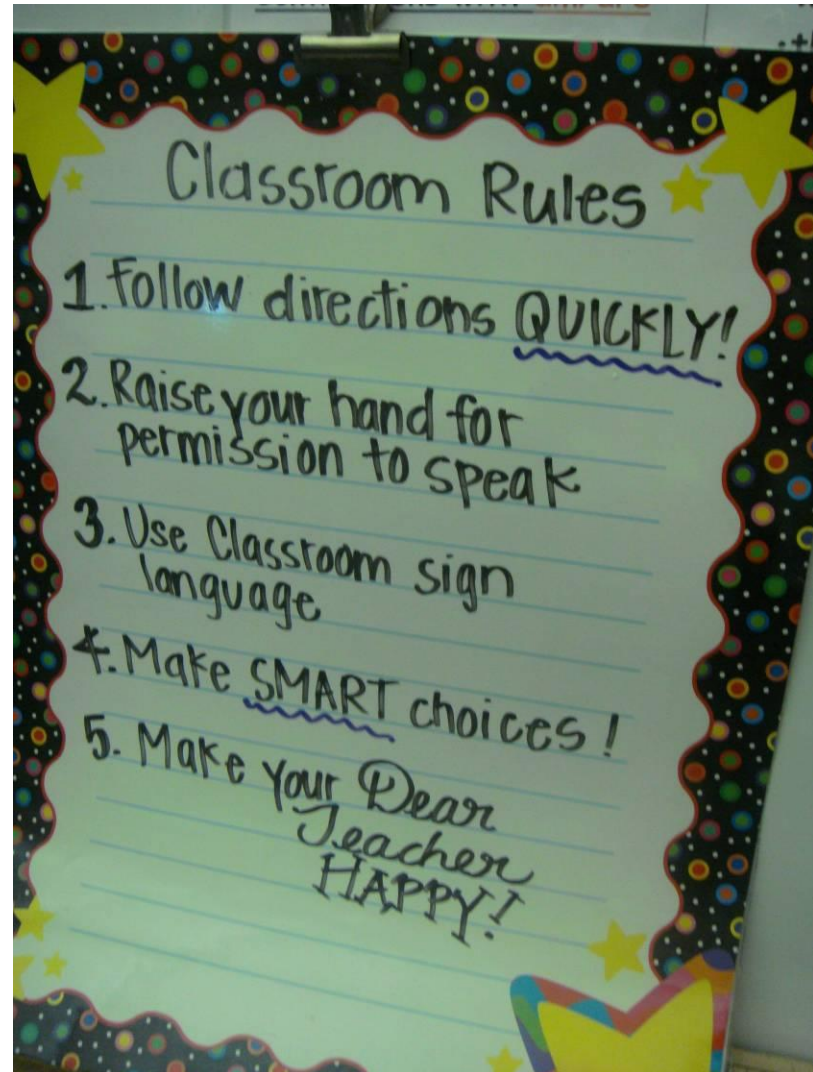 Classroom Rules
1. Follow directions QUICKLY!
2. Raise your hand for
permission to speak
3. Use Classroom sign
language
4. Make SMART choices!
5. Make your Dear
Teacher
HAPPY!